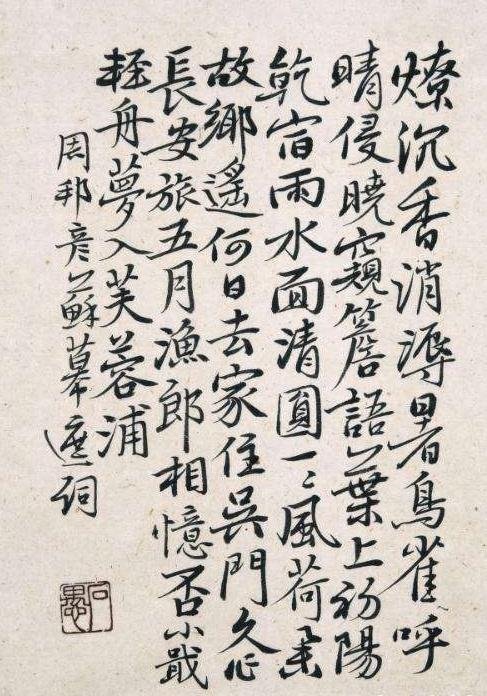 燎沉香消溽暑鳥雀呼
晴侵曉窺簷語葉上初陽
乾宿雨水面清圓一〻風荷舉
故鄉遙何日去家住吳門久作
長安旅五月漁郎相憶否小戢
輕舟夢入芙蓉浦
周邦彥蘇幕遮詞